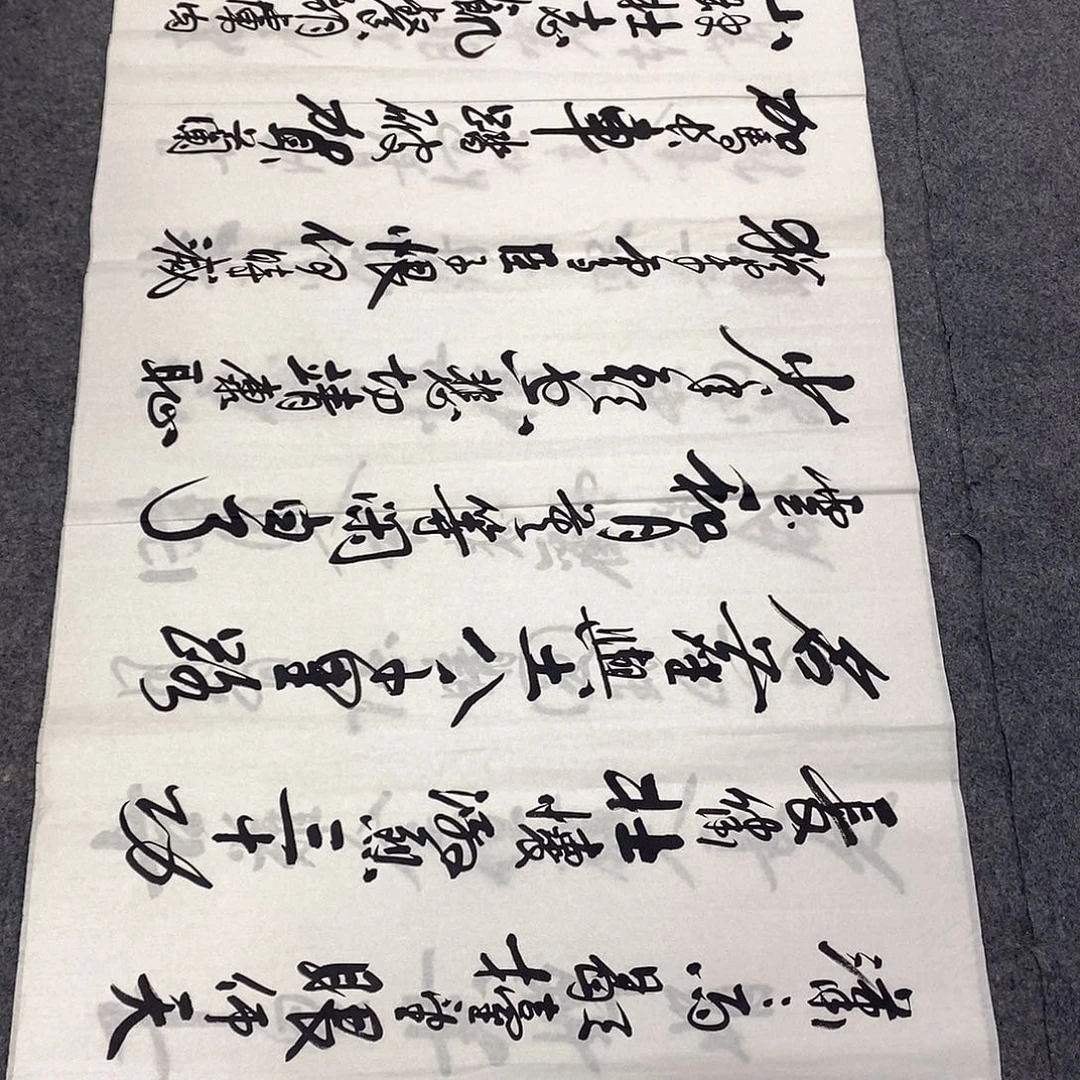 瀟〻雨歇抬望眼仰天
長嘯壯懷激烈三十功
名塵與土八千里路
雲和月莫等閒白了
少年頭空悲切靖康恥
猶未雪臣子恨何時滅
駕長車踏破賀蘭
山缺壯志飢餐胡虜肉